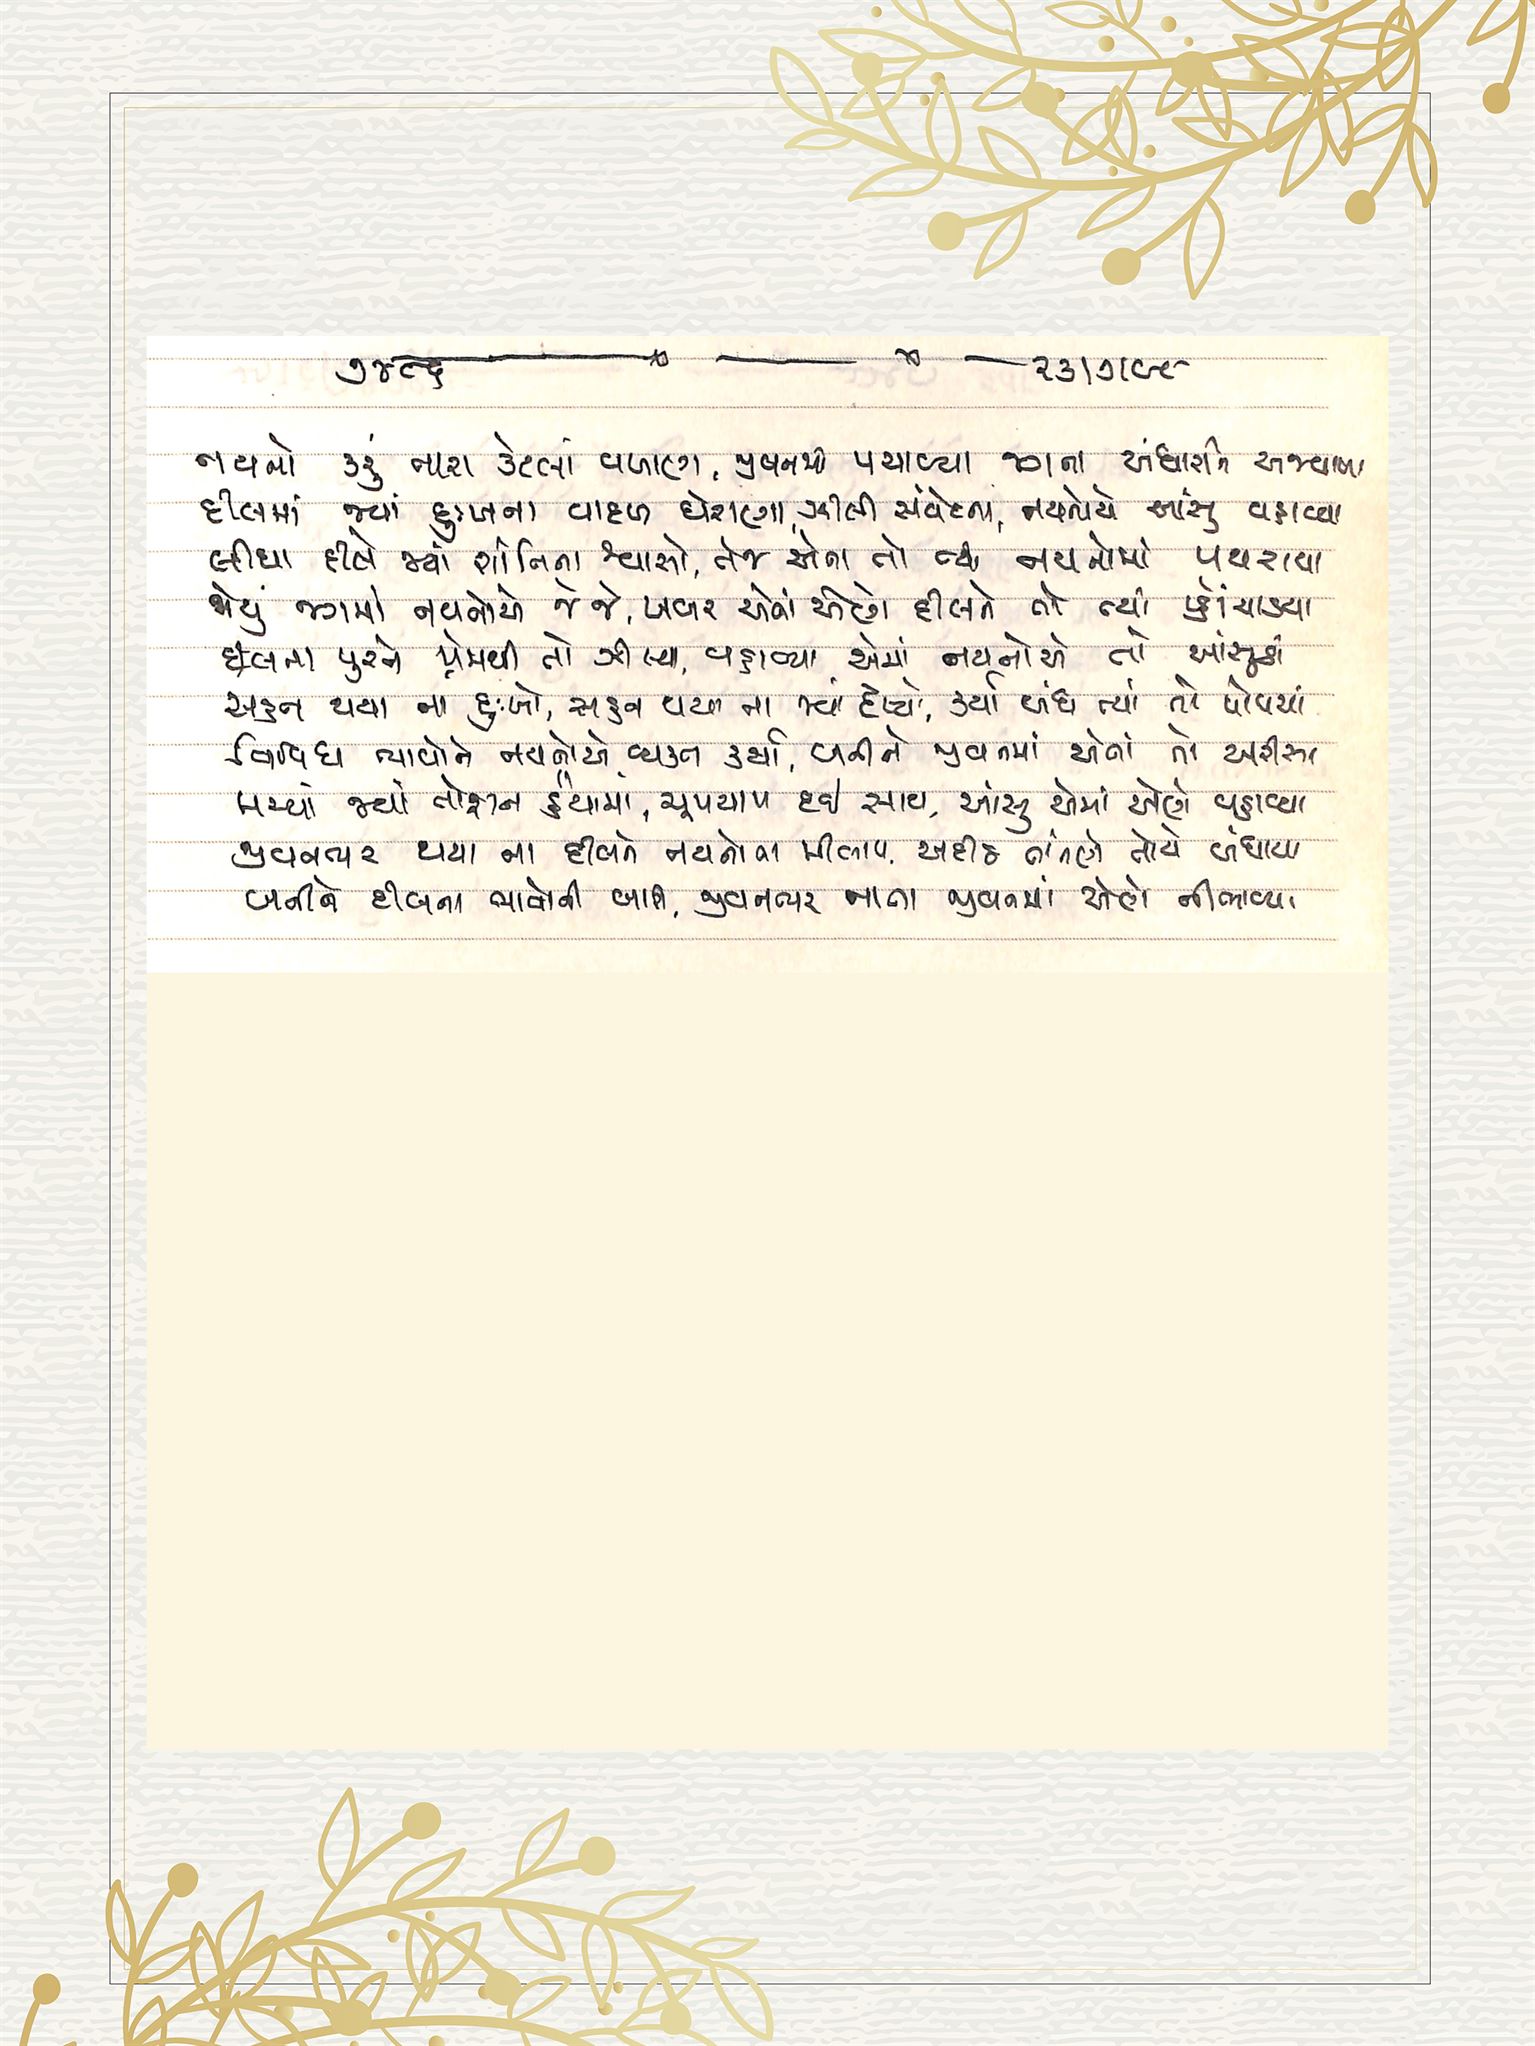 ૭૪૯૬ ૨૩|૭|૯૯
નયનો કરું તારા કેટલાં વખાણ, જીવનમાં પચાવ્યા જગના અંધારાને અજવાળા
દીલમાં જ્યાં દુઃખના વાદળ ઘેરાણા, ઝીલી સંવેદના, નયનોયે આંસુ વહાવ્યા
લીધા દીલે જ્યાં શાંતિના શ્વાસો, તેજ એના તો નયનોમાં પથરાયા
જોયું જગમાં નયનોએ જે જે, ખબર એનાં એણે દીલને તો ત્યાં પહોંચાડયા
દીલના પુરને પ્રેમથી તો ઝીલ્યા, વહાવ્યા એમાં નયનોએ તો આંસુઓ
સહન થયા ના દુઃખો, સહન થયા ના જ્યાં દૃશ્યો, કર્યા બંધ ત્યાં તો પોપચાં
વિવિધ ભાવોને નયનોએ વ્યક્ત કર્યા, બનીને જીવનમાં એનાં તો અરીસા
મચ્યાં જ્યાં તોફાન હૈયામાં, ચૂપચાપ દઈ સાથ, આંસુ એમાં એણે વહાવ્યા
જીવનભર થયા ના દીલને નયનોના મીલાપ, અદીઠ તાંતણે તોયે બંધાયા
બનીને દીલના ભાવોની બારી, જીવનભર નાતા જીવનમાં એણે નીભાવ્યા